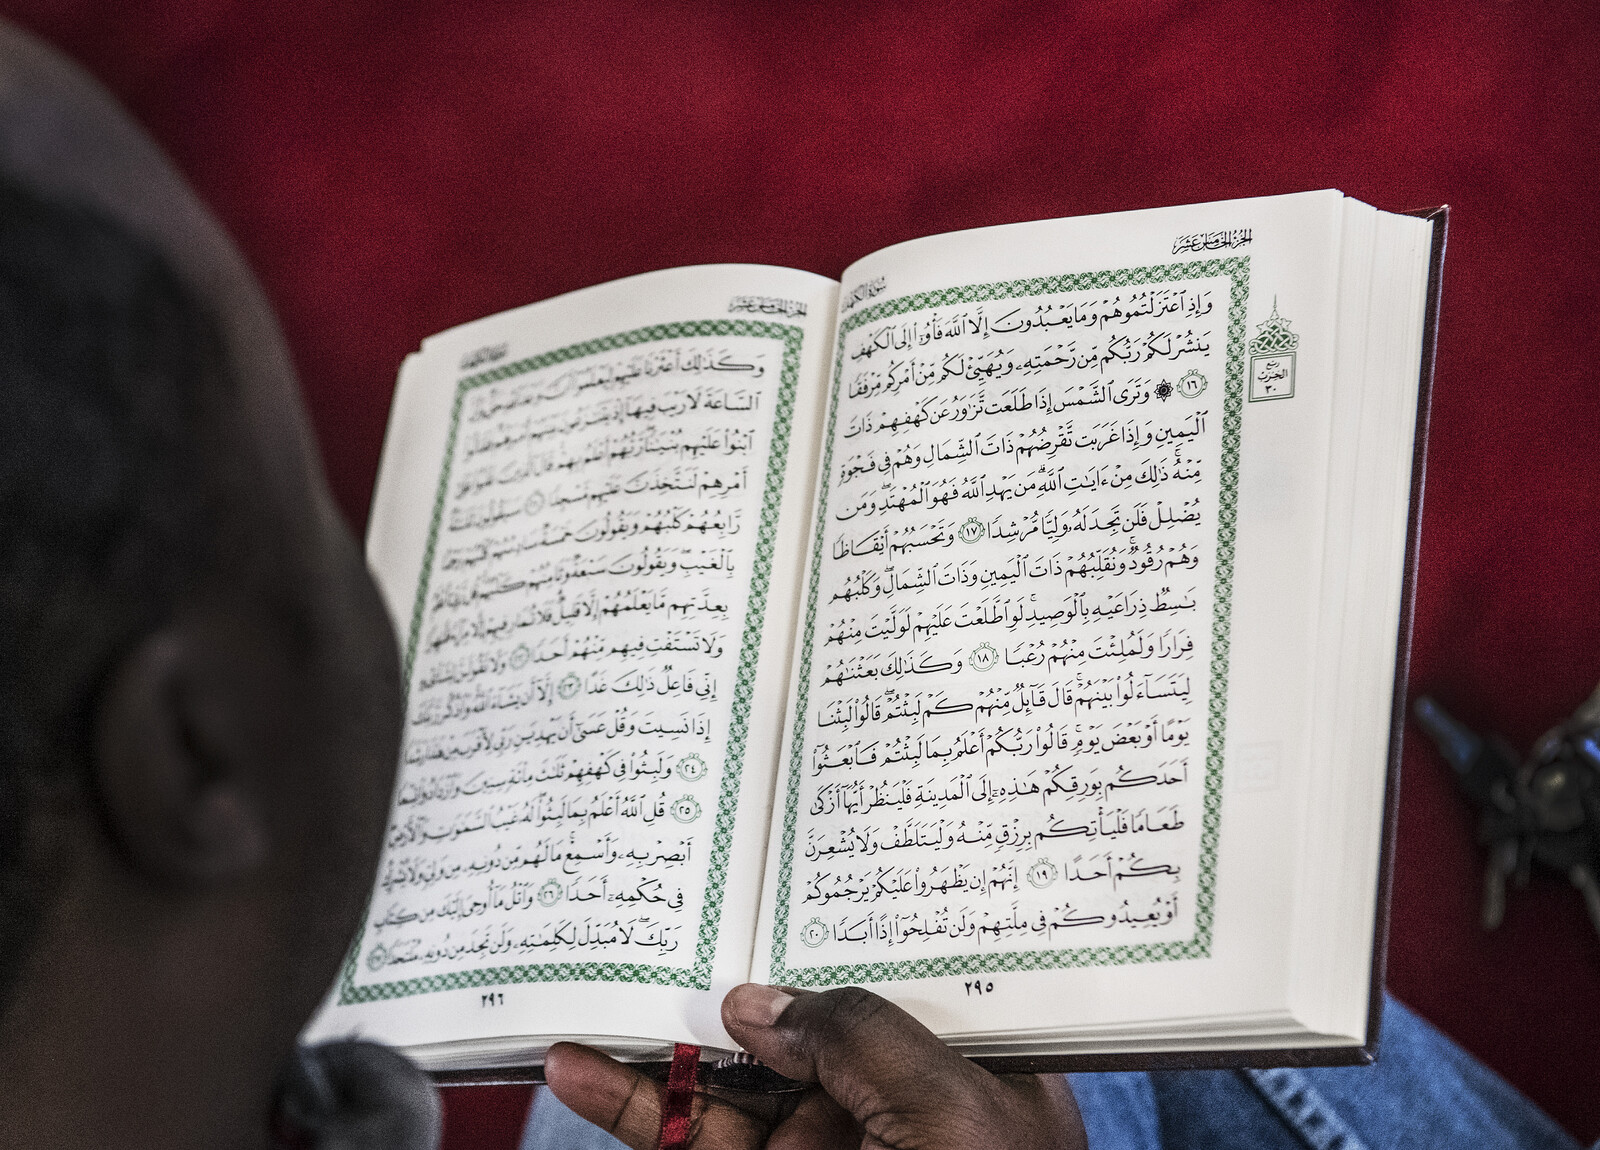 الجُزْءُ الخَامِسَ عَشَرَ
سُورَةُ الكَهْفِ
وَإِذِ ٱعْتَزَلْتُمُوهُمْ وَمَا يَعْبُدُونَ إِلَّا ٱللَّهَ فَأْوُۥٓا۟ إِلَى ٱلْكَهْفِ
يَنشُرْ لَكُمْ رَبُّكُم مِّن رَّحْمَتِهِۦ وَيُهَيِّئْ لَكُم مِّنْ أَمْرِكُم مِّرْفَقًا
١٦ ۞ وَتَرَى ٱلشَّمْسَ إِذَا طَلَعَت تَّزَٰوَرُ عَن كَهْفِهِمْ ذَاتَ
ٱلْيَمِينِ وَإِذَا غَرَبَت تَّقْرِضُهُمْ ذَاتَ ٱلشِّمَالِ وَهُمْ فِى فَجْوَةٍ
مِّنْهُ ۚ ذَٰلِكَ مِنْ ءَايَٰتِ ٱللَّهِ ۗ مَن يَهْدِ ٱللَّهُ فَهُوَ ٱلْمُهْتَدِ ۖ وَمَن
يُضْلِلْ فَلَن تَجِدَ لَهُۥ وَلِيًّا مُّرْشِدًا ١٧ وَتَحْسَبُهُمْ أَيْقَاظًا
وَهُمْ رُقُودٌ ۚ وَنُقَلِّبُهُمْ ذَاتَ ٱلْيَمِينِ وَذَاتَ ٱلشِّمَالِ ۖ وَكَلْبُهُم
بَٰسِطٌ ذِرَاعَيْهِ بِٱلْوَصِيدِ ۚ لَوِ ٱطَّلَعْتَ عَلَيْهِمْ لَوَلَّيْتَ مِنْهُمْ
فِرَارًا وَلَمُلِئْتَ مِنْهُمْ رُعْبًا ١٨ وَكَذَٰلِكَ بَعَثْنَٰهُمْ
لِيَتَسَآءَلُوا۟ بَيْنَهُمْ ۚ قَالَ قَآئِلٌ مِّنْهُمْ كَمْ لَبِثْتُمْ ۖ قَالُوا۟ لَبِثْنَا
يَوْمًا أَوْ بَعْضَ يَوْمٍ ۚ قَالُوا۟ رَبُّكُمْ أَعْلَمُ بِمَا لَبِثْتُمْ فَٱبْعَثُوٓا۟
أَحَدَكُم بِوَرِقِكُمْ هَٰذِهِۦٓ إِلَى ٱلْمَدِينَةِ فَلْيَنظُرْ أَيُّهَآ أَزْكَىٰ
طَعَامًا فَلْيَأْتِكُم بِرِزْقٍ مِّنْهُ وَلْيَتَلَطَّفْ وَلَا يُشْعِرَنَّ
بِكُمْ أَحَدًا ١٩ إِنَّهُمْ إِن يَظْهَرُوا۟ عَلَيْكُمْ يَرْجُمُوكُمْ
أَوْ يُعِيدُوكُمْ فِى مِلَّتِهِمْ وَلَن تُفْلِحُوٓا۟ إِذًا أَبَدًا ٢٠
رُبْعُ
الحِزْبِ
٣٠
٢٩٥
الجُزْءُ الخَامِسَ عَشَرَ
وَكَذَٰلِكَ أَعْثَرْنَا عَلَيْهِمْ لِيَعْلَمُوٓا۟ أَنَّ وَعْدَ ٱللَّهِ حَقٌّ وَأَنَّ
ٱلسَّاعَةَ لَا رَيْبَ فِيهَآ إِذْ يَتَنَٰزَعُونَ بَيْنَهُمْ أَمْرَهُمْ ۖ فَقَالُوا۟
ٱبْنُوا۟ عَلَيْهِم بُنْيَٰنًا ۖ رَّبُّهُمْ أَعْلَمُ بِهِمْ ۚ قَالَ ٱلَّذِينَ غَلَبُوا۟ عَلَىٰٓ
أَمْرِهِمْ لَنَتَّخِذَنَّ عَلَيْهِم مَّسْجِدًا ٢١ سَيَقُولُونَ ثَلَٰثَةٌ
رَّابِعُهُمْ كَلْبُهُمْ وَيَقُولُونَ خَمْسَةٌ سَادِسُهُمْ كَلْبُهُمْ رَجْمًۢا
بِٱلْغَيْبِ ۖ وَيَقُولُونَ سَبْعَةٌ وَثَامِنُهُمْ كَلْبُهُمْ ۚ قُل رَّبِّىٓ أَعْلَمُ
بِعِدَّتِهِم مَّا يَعْلَمُهُمْ إِلَّا قَلِيلٌ ۗ فَلَا تُمَارِ فِيهِمْ إِلَّا مِرَآءً ظَٰهِرًا
وَلَا تَسْتَفْتِ فِيهِم مِّنْهُمْ أَحَدًا ٢٢ وَلَا تَقُولَنَّ لِشَا۟ىْءٍ
إِنِّى فَاعِلٌ ذَٰلِكَ غَدًا ٢٣ إِلَّآ أَن يَشَآءَ ٱللَّهُ ۚ وَٱذْكُر رَّبَّكَ
إِذَا نَسِيتَ وَقُلْ عَسَىٰٓ أَن يَهْدِيَنِ رَبِّى لِأَقْرَبَ مِنْ هَٰذَا رَشَدًا
٢٤ وَلَبِثُوا۟ فِى كَهْفِهِمْ ثَلَٰثَ مِا۟ئَةٍ سِنِينَ وَٱزْدَادُوا۟ تِسْعًا
٢٥ قُلِ ٱللَّهُ أَعْلَمُ بِمَا لَبِثُوا۟ ۖ لَهُۥ غَيْبُ ٱلسَّمَٰوَٰتِ وَٱلْأَرْضِ ۖ
أَبْصِرْ بِهِۦ وَأَسْمِعْ ۚ مَا لَهُم مِّن دُونِهِۦ مِن وَلِىٍّ وَلَا يُشْرِكُ
فِى حُكْمِهِۦٓ أَحَدًا ٢٦ وَٱتْلُ مَآ أُوحِىَ إِلَيْكَ مِن كِتَابِ
رَبِّكَ ۖ لَا مُبَدِّلَ لِكَلِمَٰتِهِۦ وَلَن تَجِدَ مِن دُونِهِۦ مُلْتَحَدًا ٢٧
٢٩٦